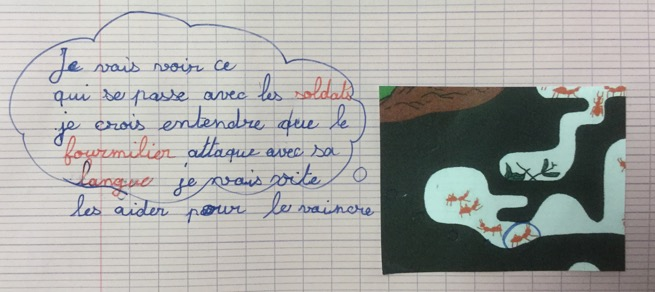 Je vais voir ce
qui se passe avec les soldats
je crois entendre que le
fourmilier attaque avec sa
langue je vais vite
les aider pour le vaincre